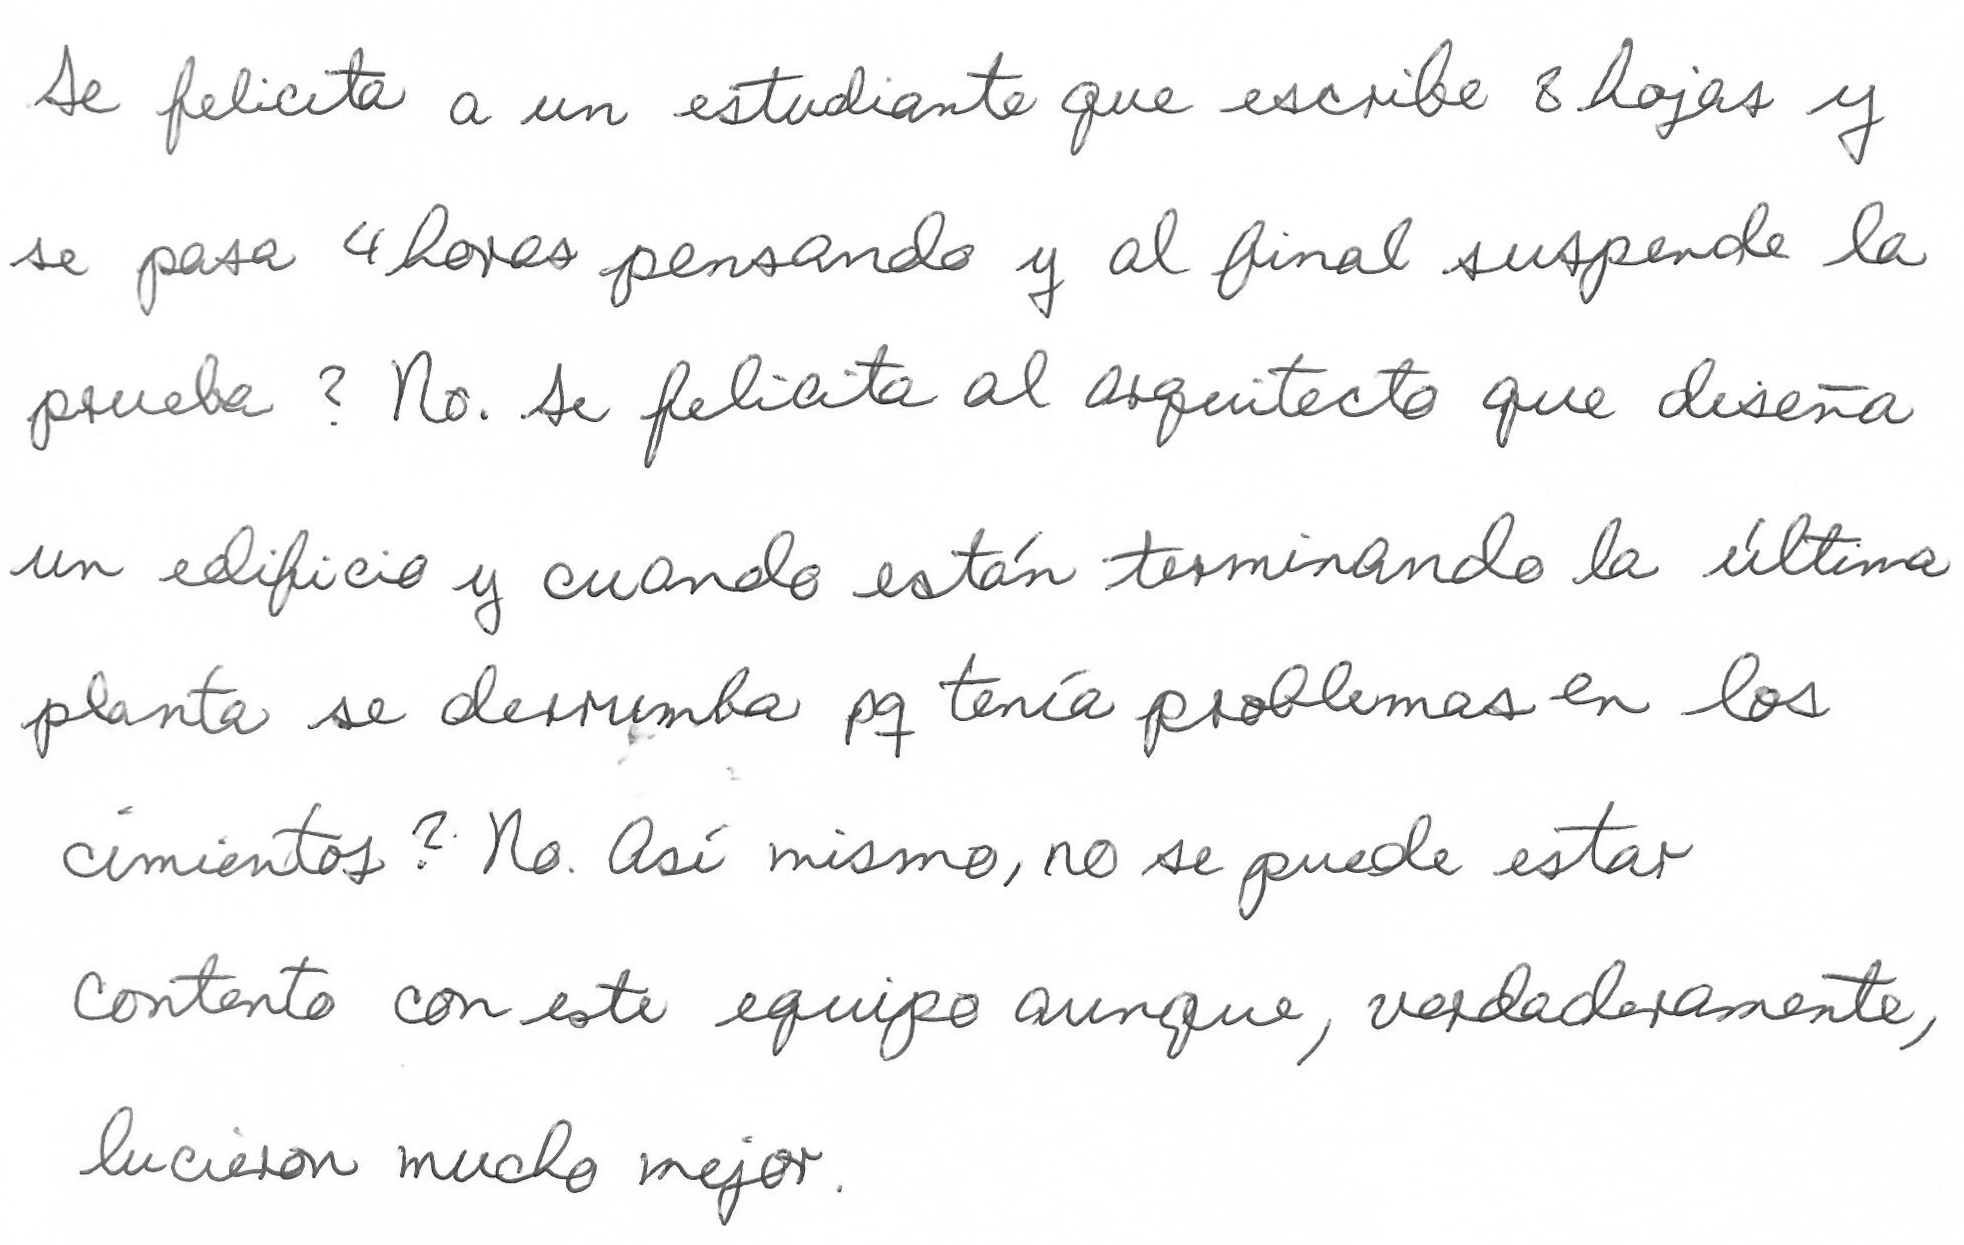 Se felicita a un estudiante que escribe 8 hojas y
se pasa 4 horas pensando y al final suspende la
prueba? No. Se felicita al arquitecto que diseña
un edificio y cuando están terminando la última
planta se derrumba pq tenía problemas en los
cimientos? No. Así mismo, no se puede estar
contento con este equipo aunque, verdaderamente,
lucieron mucho mejor.